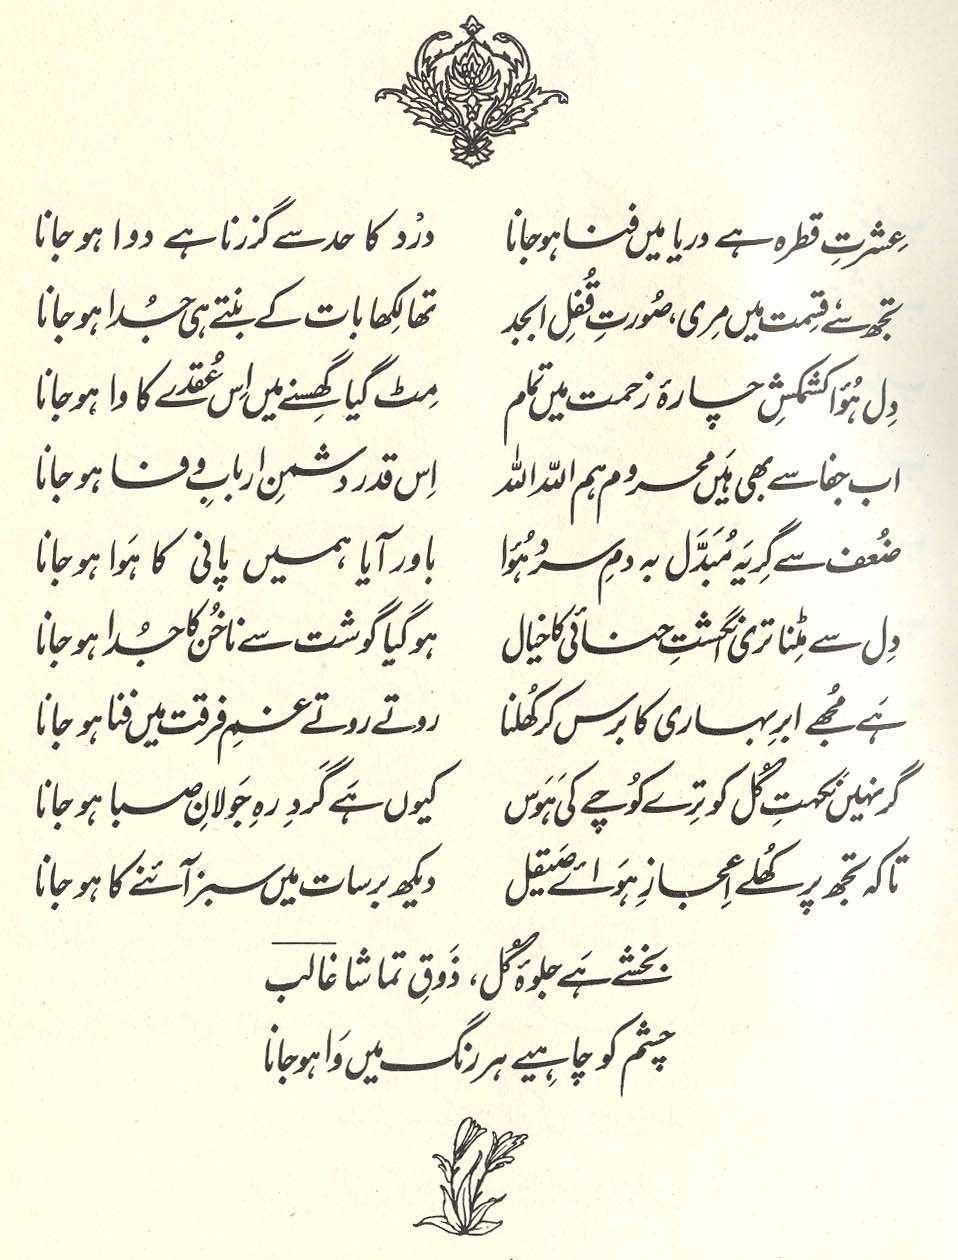 عِشرتِ قطرہ ہے دریا میں فنا ہو جانا درْد کا حد سے گزرنا ہے دوا ہو جانا
تجھ سے قِسمت میں مِری، صُورتِ قُفلِ ابجد تھا لِکھا بات کے بنتے ہی جُدا ہو جانا
دِل ہُؤا کشمکشِ چارۂ زحمت میں تمام مِٹ گیا گھِسنے میں اِس عُقدے کا وا ہو جانا
اب جفا سے بھی ہَیں محروم ہم اللہ اللہ اِس قدر دشمنِ اربابِ وفا ہو جانا
ضُعف سے گِریَہ مُبَدَّل بہ دمِ سرد ہُؤا باور آیا ہمیں پانی کا ہَوا ہو جانا
دِل سے مِٹنا تری انگشتِ حنائی کا خیال ہو گیا گوشت سے ناخُن کا جُدا ہو جانا
ہَے مُجھے ابرِ بہاری کا برس کر کھُلنا روتے روتے غمِ فرقت میں فنا ہو جانا
گر نہیں نکہتِ گُل کو تِرے کُوچے کی ہَوَس کیوں ہَے گَردِ رہِ جَولانِ صبا ہو جانا
تاکہ تجھ پر کھُلے اِعجازِ ہَوائے صَیقل دیکھ برسات میں سبز آئنے کا ہو جانا
بخشے ہَے جلوۂ گُل، ذَوقِ تماشا غالب
چشم کو چاہیے ہر رنگ میں وَا ہو جانا